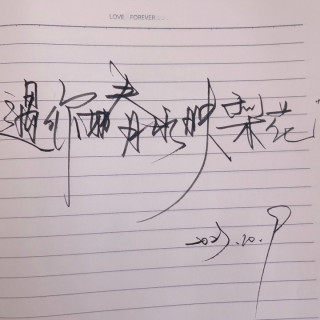 LOVE...FOREVER.....
遇你如春水映梨花
2023.10.9